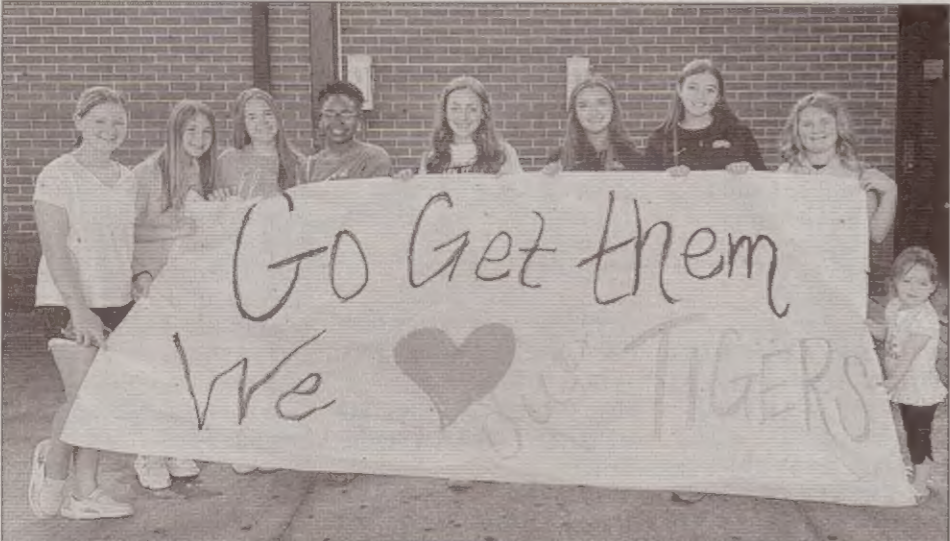 Go Get them
We ♥ our TIGERS